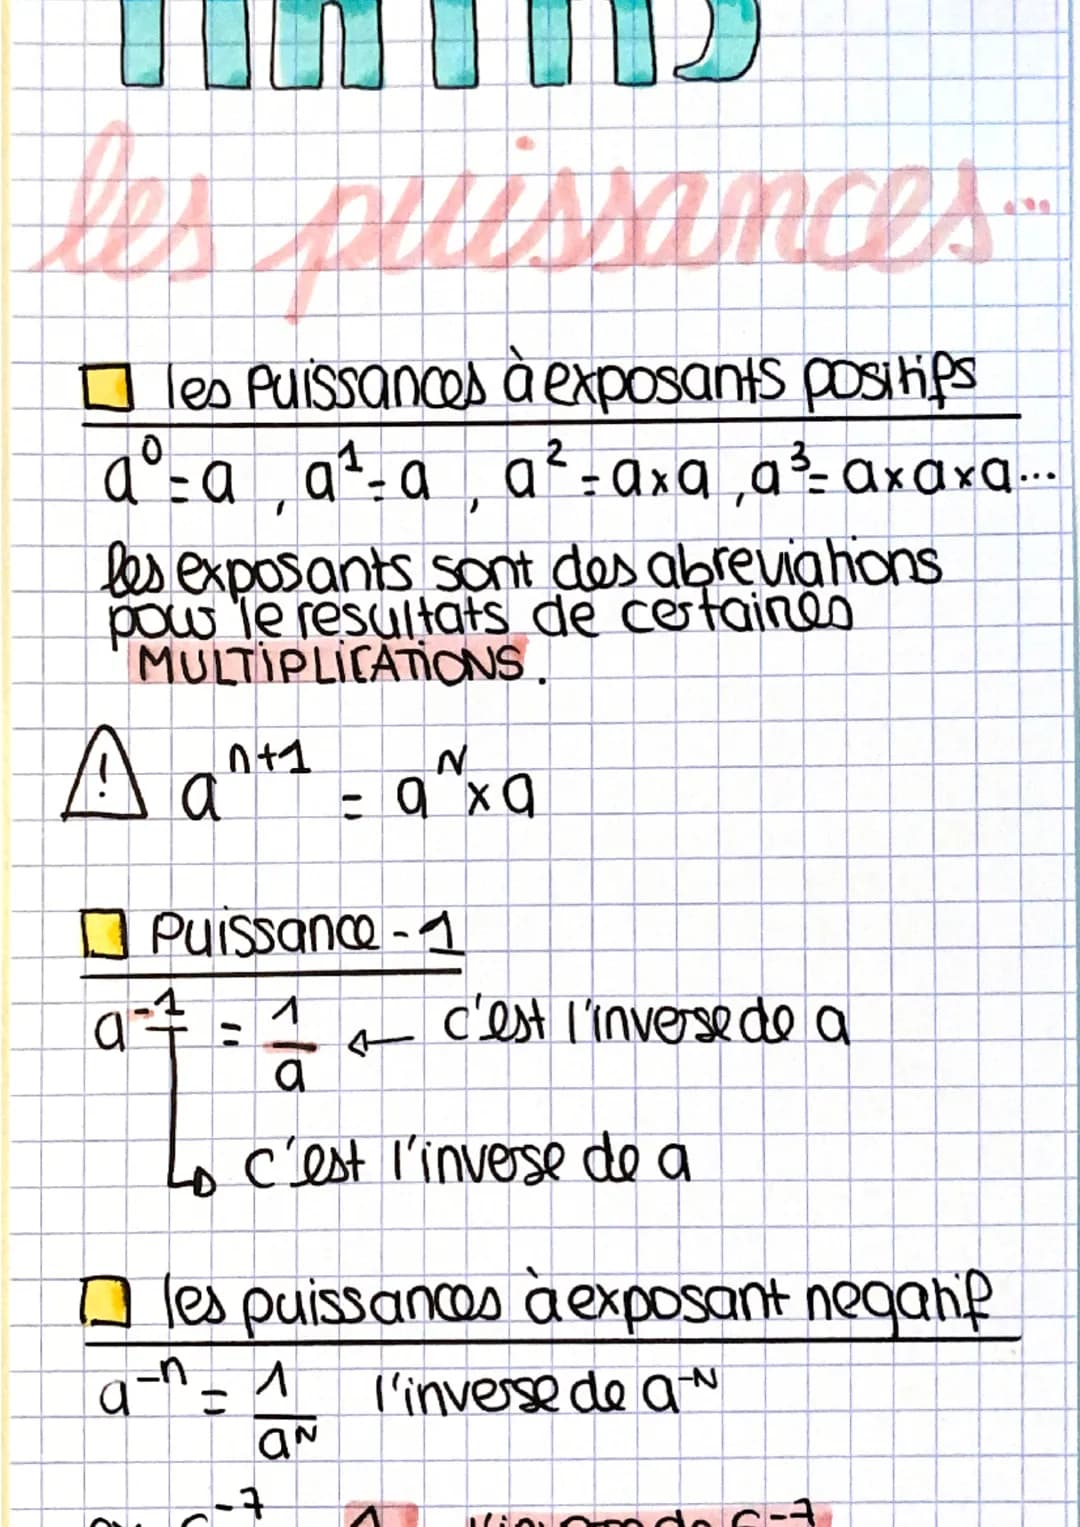 MATHS
les puissances...
les Puissances à exposants positifs
a⁰=a , a¹=a , a²=axa , a³=axaxa...
les exposants sont des abreviations
pour le resultats de certaines
MULTIPLICATIONS.
! aⁿ⁺¹ = aᴺxa
Puissance -1
a⁻¹ = 1/a ← c'est l'inverse de a
↳ c'est l'inverse de a
les puissances à exposant negatif
a⁻ⁿ = 1/aᴺ l'inverse de a⁻ᴺ